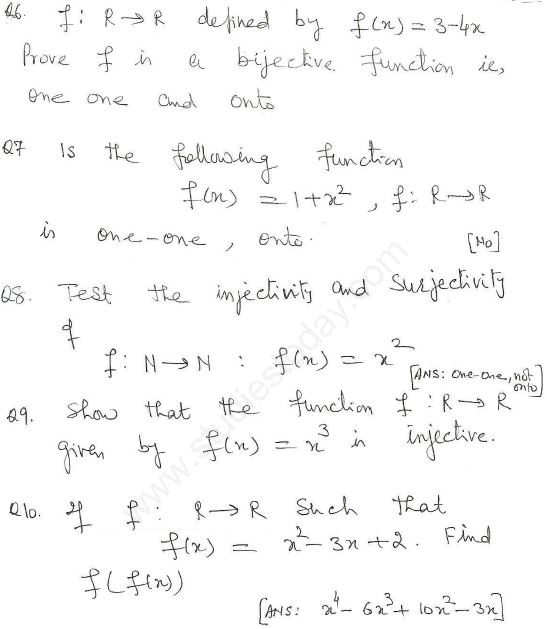 Q6. f: R→R defined by f(x) = 3-4x
Prove f is a bijective function ie,
one one and onto
Q7 Is the following function
f(x) = 1+x², f: R→R
is one-one, onto. [No]
Q8. Test the injectivity and surjectivity
of
f: N→N : f(x) = x²
[ANS: one-one, not onto]
Q9. Show that the function f : R→R
given by f(x) = x³ is injective.
Q10. If f: R→R such that
f(x) = x²-3x+2. Find
f(f(x))
[ANS: x⁴-6x³+10x²-3x]
www.studiestoday.com